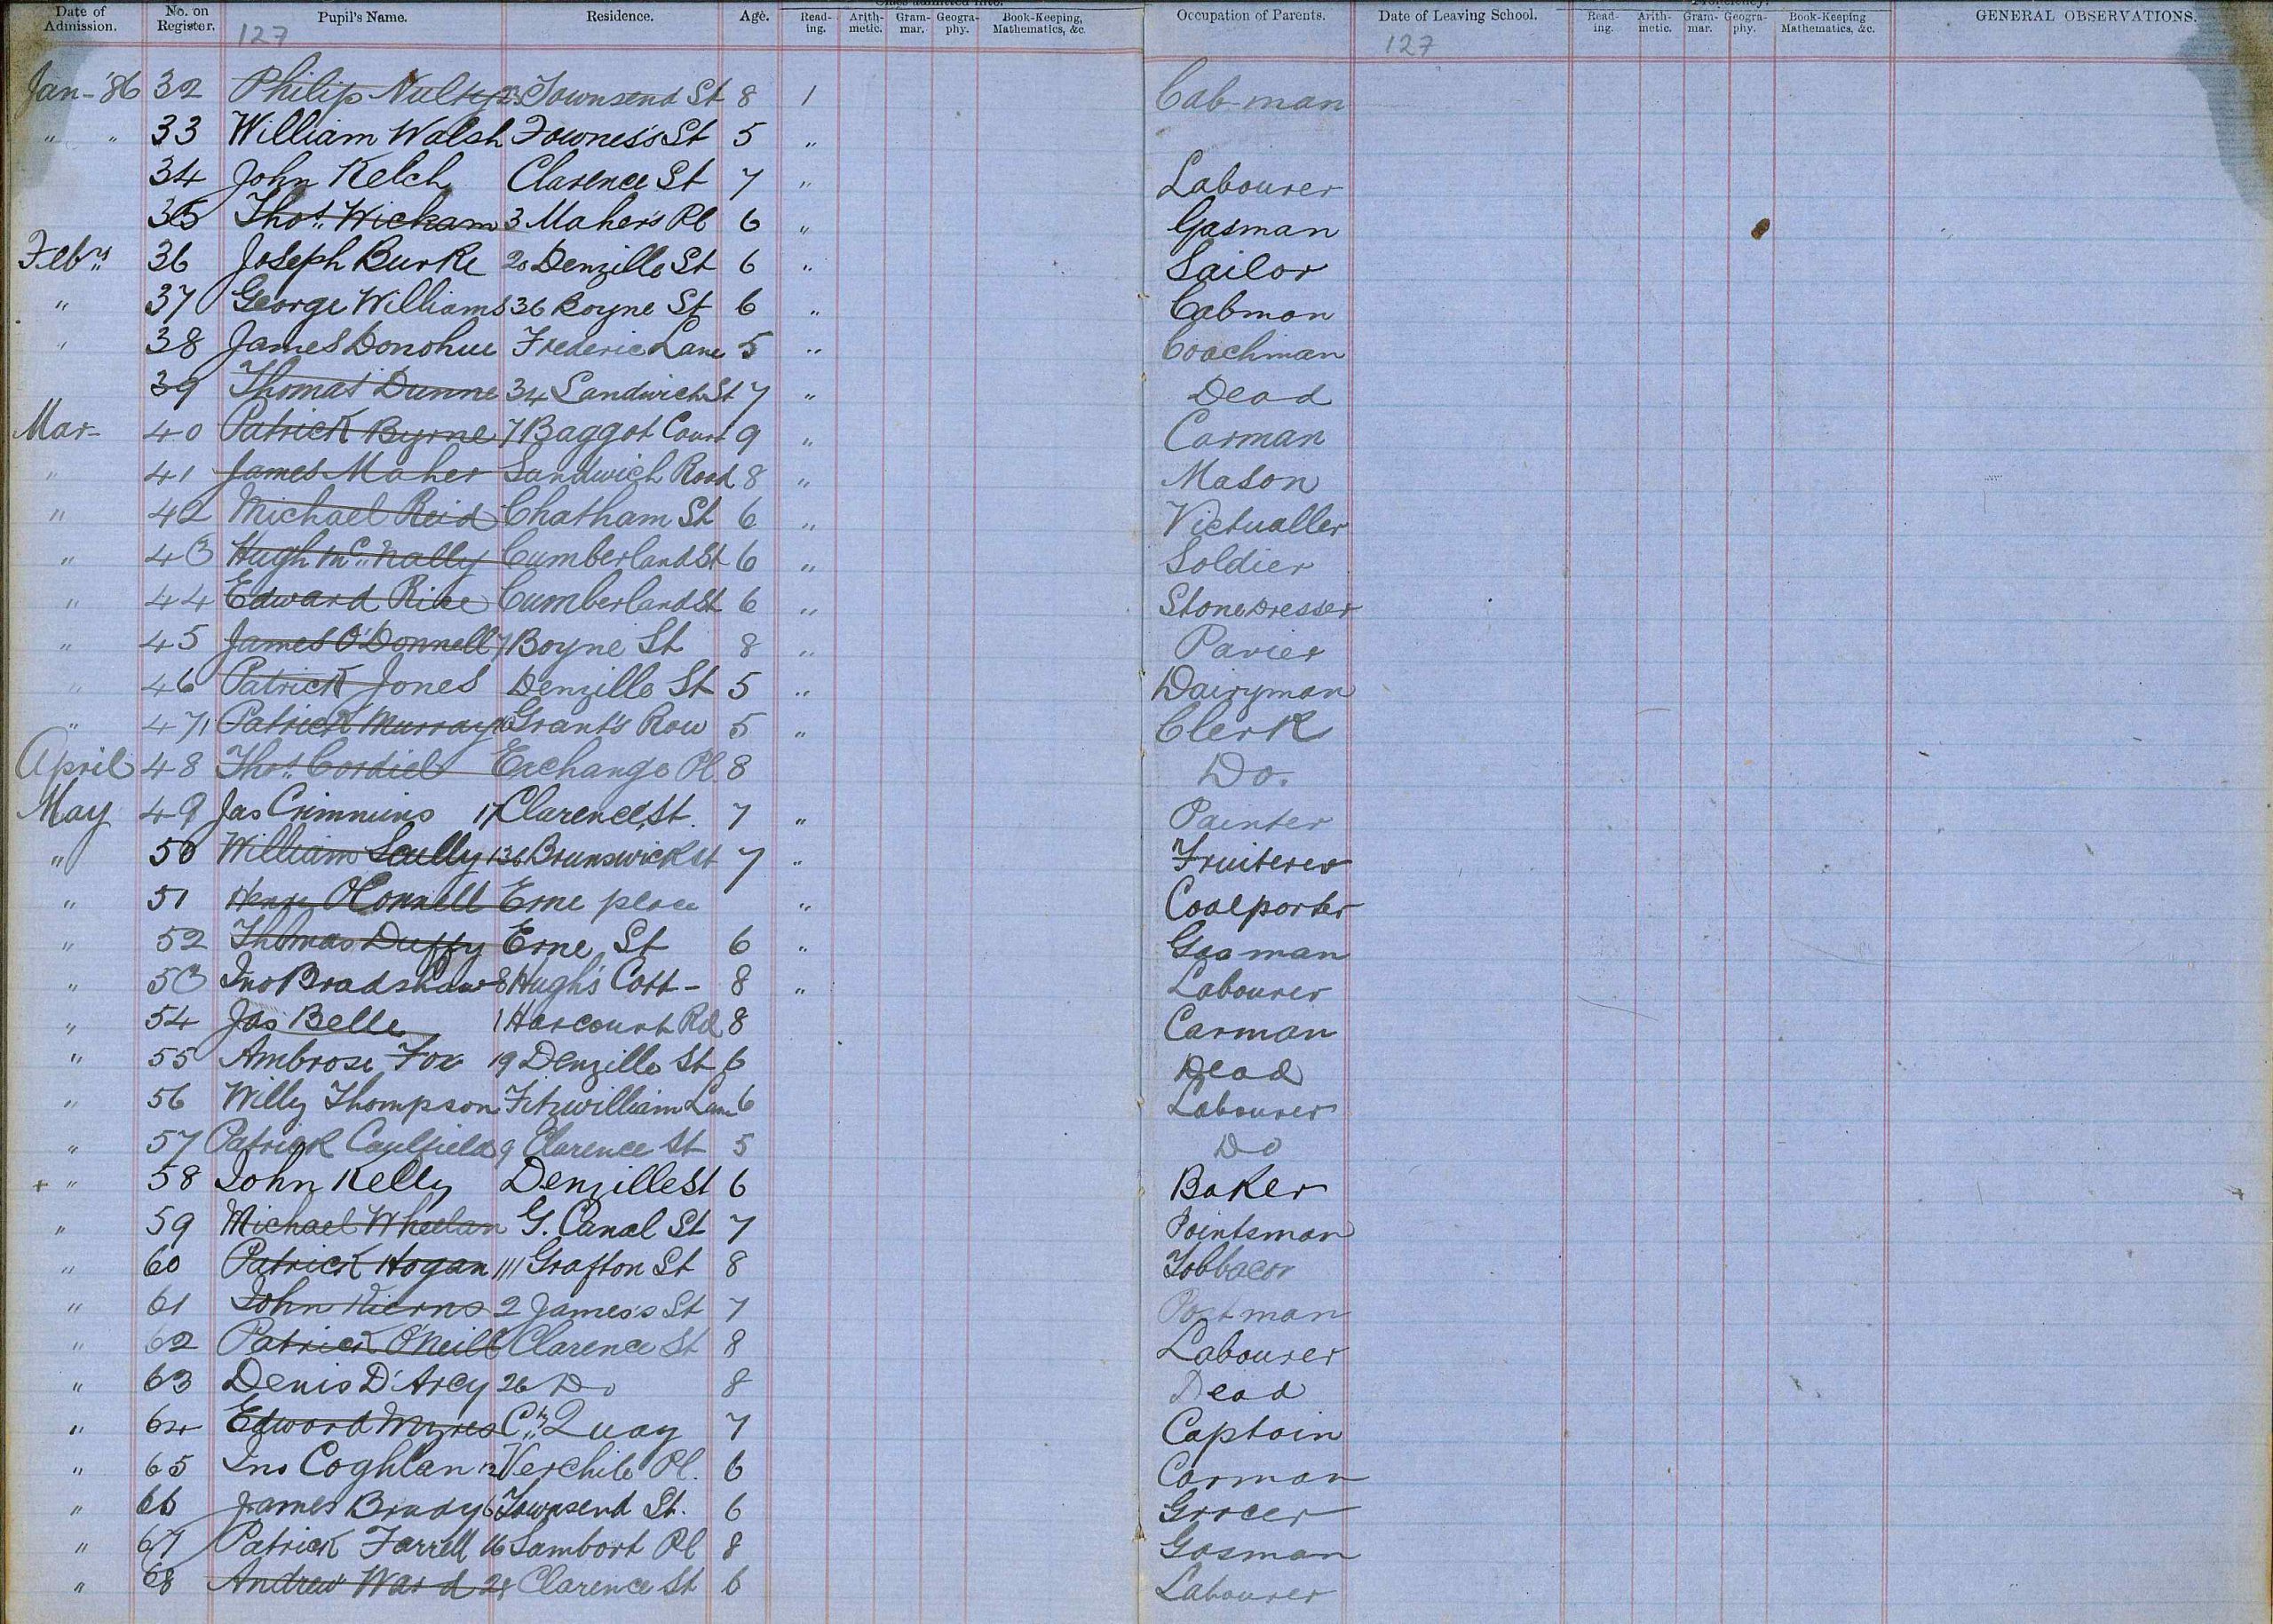 Date of Admission. No. on Register. Pupil's Name. Residence. Age. Class admitted into. Reading. Arithmetic. Grammar. Geography. Book-Keeping, Mathematics, &c. Occupation of Parents. Date of Leaving School. Proficiency. Reading. Arithmetic. Grammar. Geography. Book-Keeping Mathematics, &c. GENERAL OBSERVATIONS.
127 127
Jan - '86 32 Philip Nulty Townsend St 8 1 Cab-man
" " 33 William Walsh Fownes's St 5 "
34 John Kelch Clarence St 7 " Labourer
35 Thos. Wickam 3 Maher's Pl 6 " Gasman
Feby. 36 Joseph Burke 20 Denzille St 6 " Sailor
" 37 George Williams 36 Boyne St 6 " Cabman
" 38 James Donohue Frederic Lane 5 " Coachman
39 Thomas Dunne 34 Sandwich St 7 " Dead
Mar - 40 Patrick Byrne 7 Baggot Court 9 " Carman
" 41 James Maher Sandwich Road 8 " Mason
" 42 Michael Reid Chatham St 6 " Victualler
" 43 Hugh Mc. Nally Cumberland St 6 " Soldier
" 44 Edward Rice Cumberland St 6 " Stone Dresser
" 45 James O'Donnell 7 Boyne St 8 " Pavier
" 46 Patrick Jones Denzille St 5 " Dairyman
" 47 Patrick Murray Grant's Row 5 " Clerk
April 48 Thos. Cordiel Exchange Pl. 8 Do.
May 49 Jas Crimmins 17 Clarence St. 7 " Painter
" 50 William Scully 136 Brunswick St 7 " Fruiterer
" 51 Henry O'Connell Erne place " Coalporter
" 52 Thomas Duffy Erne St 6 " Gas man
" 53 Jno Bradshaw 8 Hugh's Cott - 8 " Labourer
" 54 Jas Belle 1 Harcourt Rd 8 Carman
" 55 Ambrose Fox 19 Denzille St 6 Dead
" 56 Willy Thompson Fitzwilliam Lane 6 Labourer
" 57 Patrick Caulfield 9 Clarence St 5 Do
+ " 58 John Kelly Denzille St 6 Baker
" 59 Michael Wheelan G. Canal St 7 Pointsman
" 60 Patrick Hogan 111 Grafton St 8 Tobbacor
" 61 John Kierns 2 James's St 7 Postman
" 62 Patrick O'Neill Clarence St 8 Labourer
" 63 Denis D'Arcy 26 Do 8 Dead
" 64 Edward Myres Cy. Quay 7 Captain
" 65 Jno Coghlan 12 Verchile Pl. 6 Carman
" 66 James Brady 6 Townsend St. 6 Grocer
" 67 Patrick Farrell 16 Sambort Pl 8 Gasman
" 68 Andrew Ward 28 Clarence St 6 Labourer